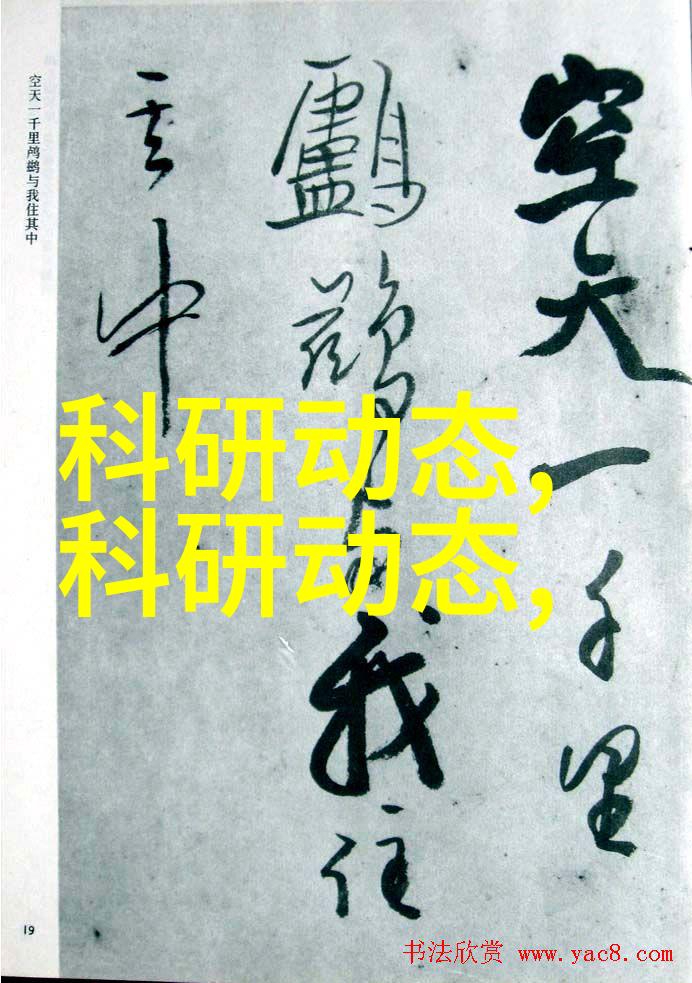 空天一千里
鸕鷀我住
其中
空天一千里鸬鹚与我住其中
科研动态,
科研动态,
19
书法欣赏 www.yac8.com